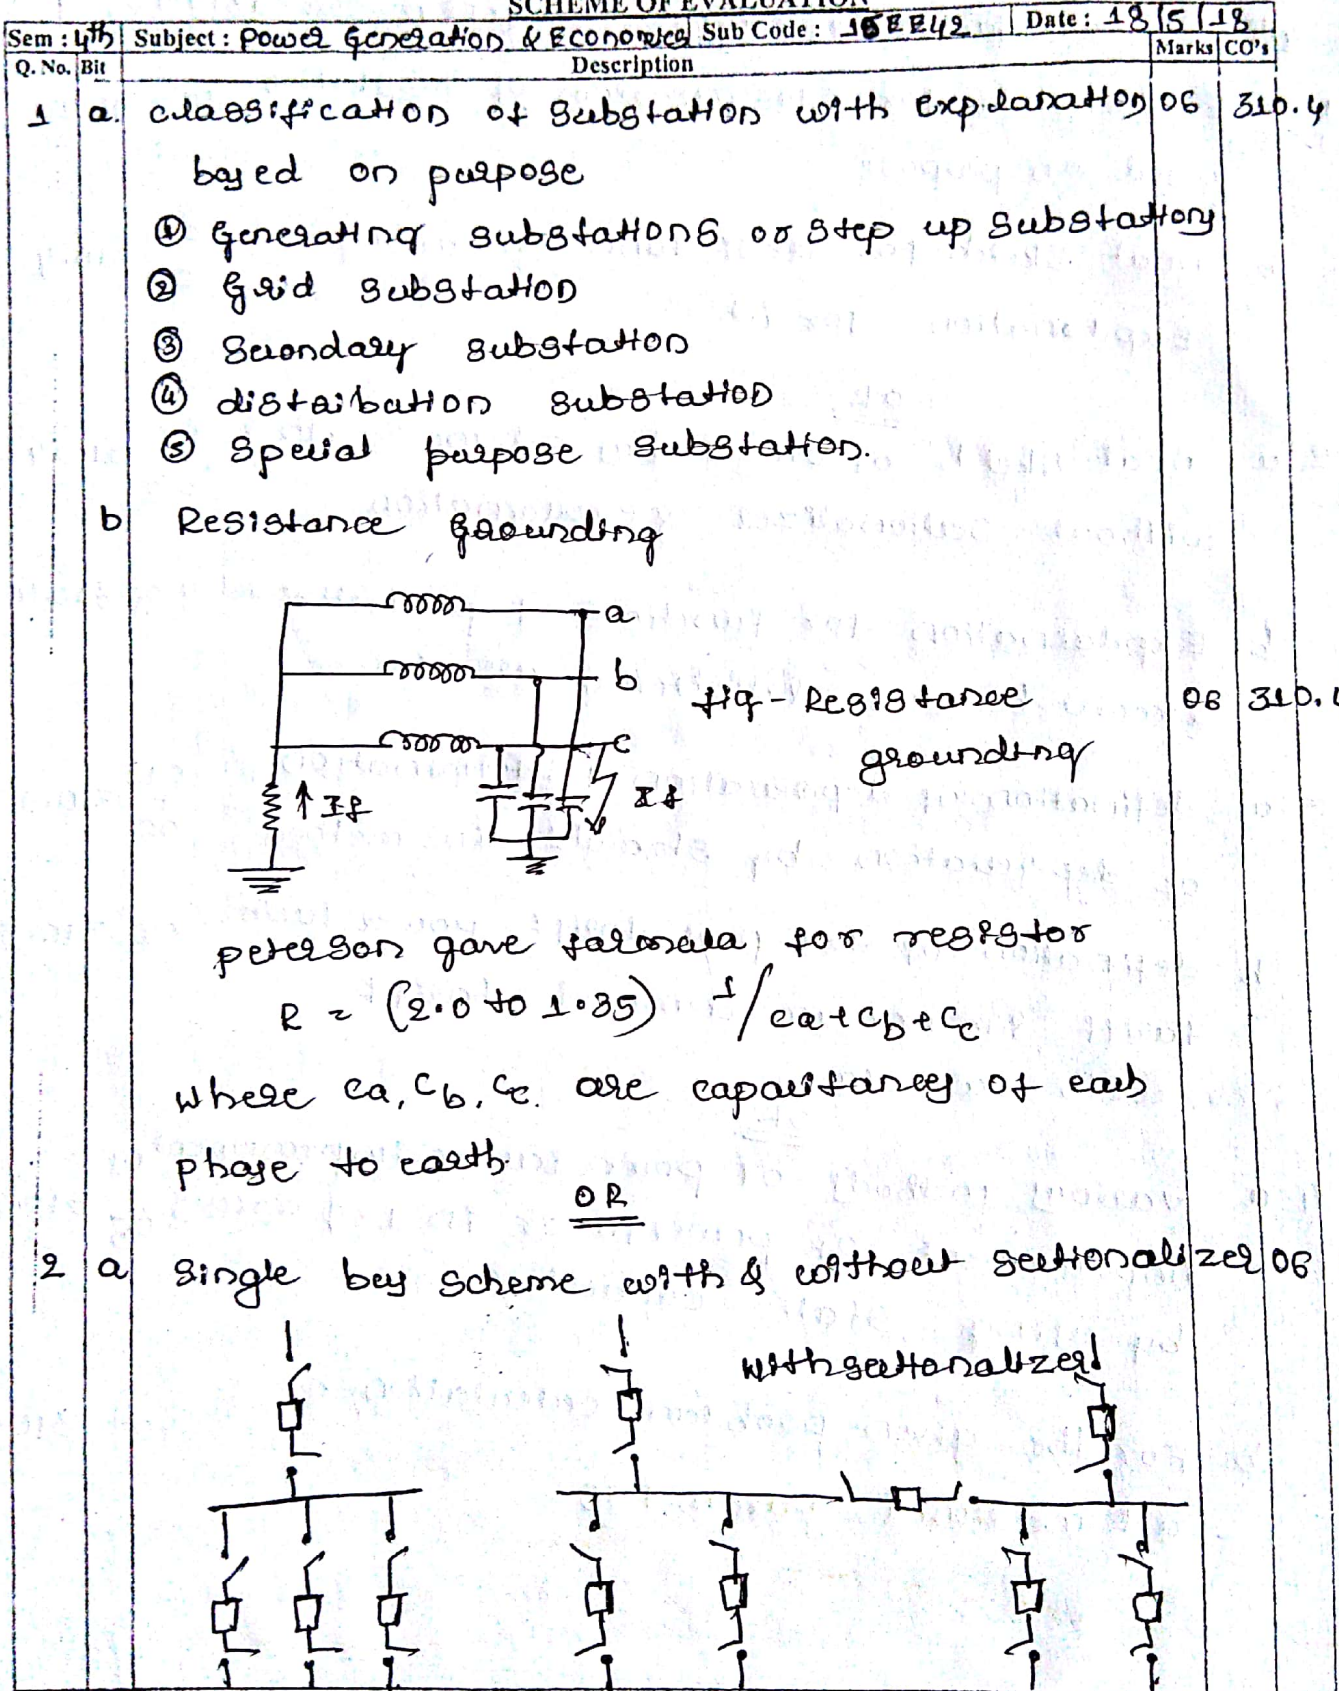 SCHEME OF EVALUATION
Sem : 4th Subject : Power Generation & Economics Sub Code : 15EE42 Date : 18/5/18
Q. No. Bit Description Marks CO's
1 a. classification of Substation with Explanation 06 310.4
based on purpose
① Generating substations or Step up Substation
② Grid substation
③ Secondary substation
④ distribution substation
⑤ Special purpose substation.
b Resistance grounding
a
b
fig - Resistance 06 310.
c
grounding
If
If
peterson gave formula for resistor
R = (2.0 to 1.35) 1/ca+cb+cc
where ca, cb, cc. are capacitances of each
phase to earth.
OR
2 a Single bus scheme with & without sectionalizer 06
with sectionalizer